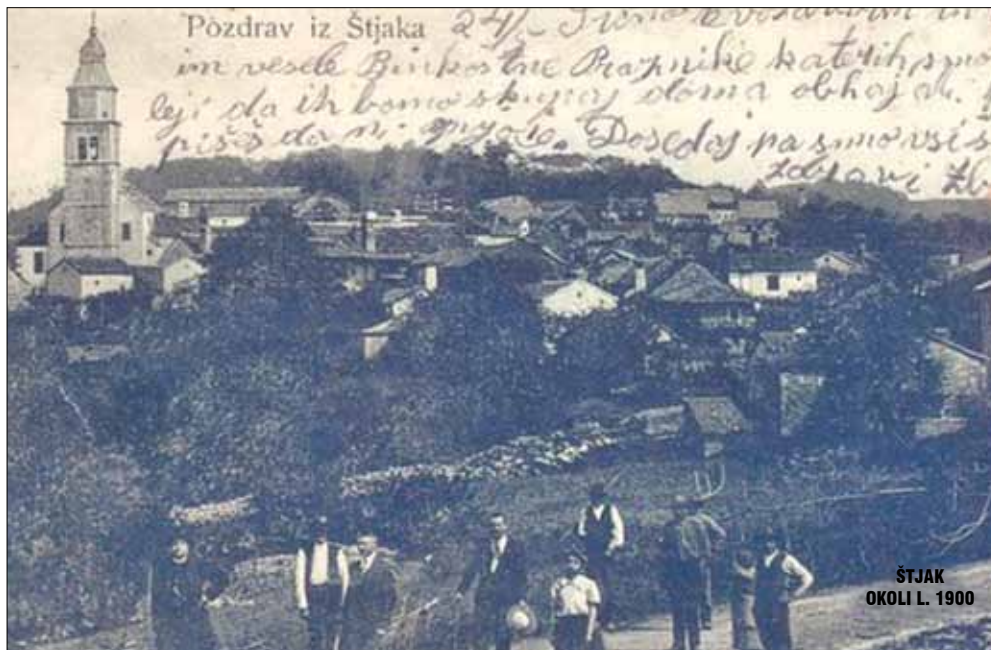 Pozdrav iz Štjaka 24/
im vesele Binkostne Praznike katerih smo
leji da ih bomo skupaj doma obhajali.
pišeš da ni mogoče. Dosedaj pa smo vsi
zdravi
ŠTJAK
OKOLI L. 1900